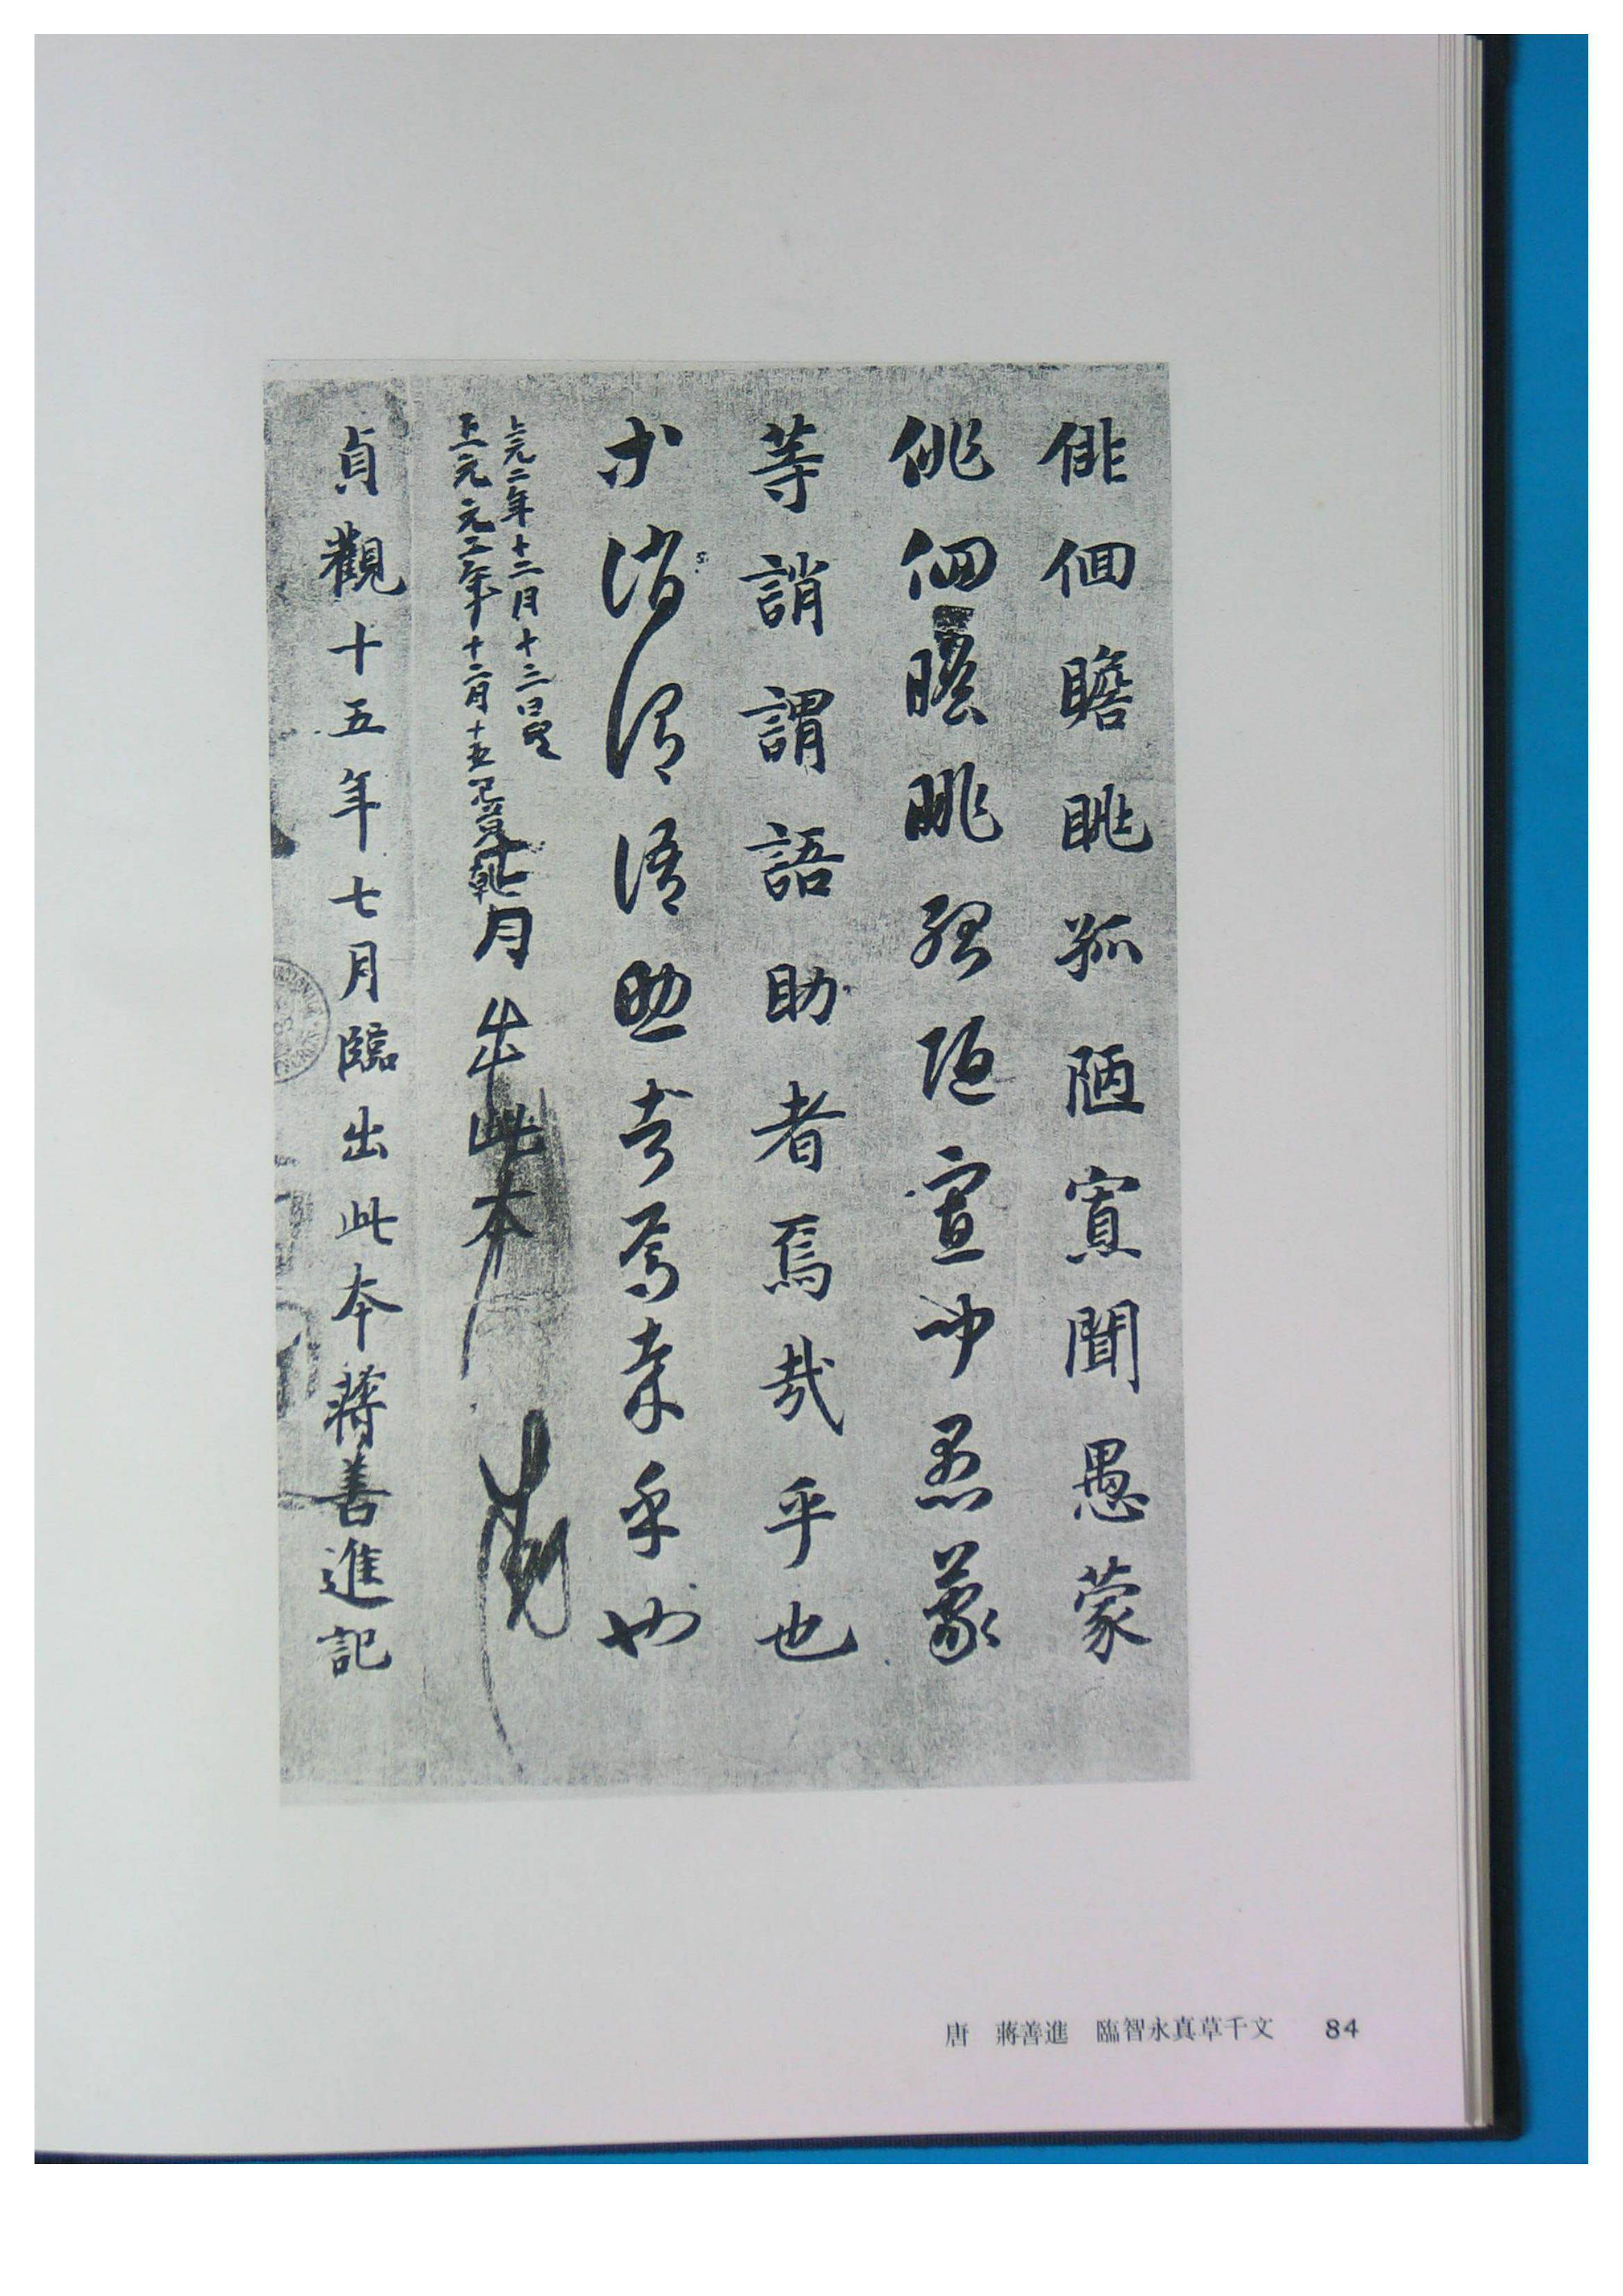 俳佪瞻眺孤陋寡聞愚蒙
俳佪瞻眺孤陋寡聞愚蒙
等誚謂語助者焉哉乎也
等誚謂語助者焉哉乎也
上元二年十二月十三日
上元元二年十二月十五
月出此本
貞觀十五年七月臨出此本蔣善進記
唐 蔣善進 臨智永真草千文 84